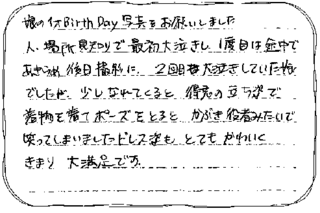 娘の1才BirthDay写真をお願いしました
人、場所見知りで最初大泣きし、1度目は途中で
あきらめ後日撮影に、2回目も大泣きしていた娘
でしたが、少しなれてくると得意の立ち姿で
着物を着てポーズをとるとかぶき役者みたいで
笑ってしまいましたドレス姿もとてもかわいく
きまり大満足です。